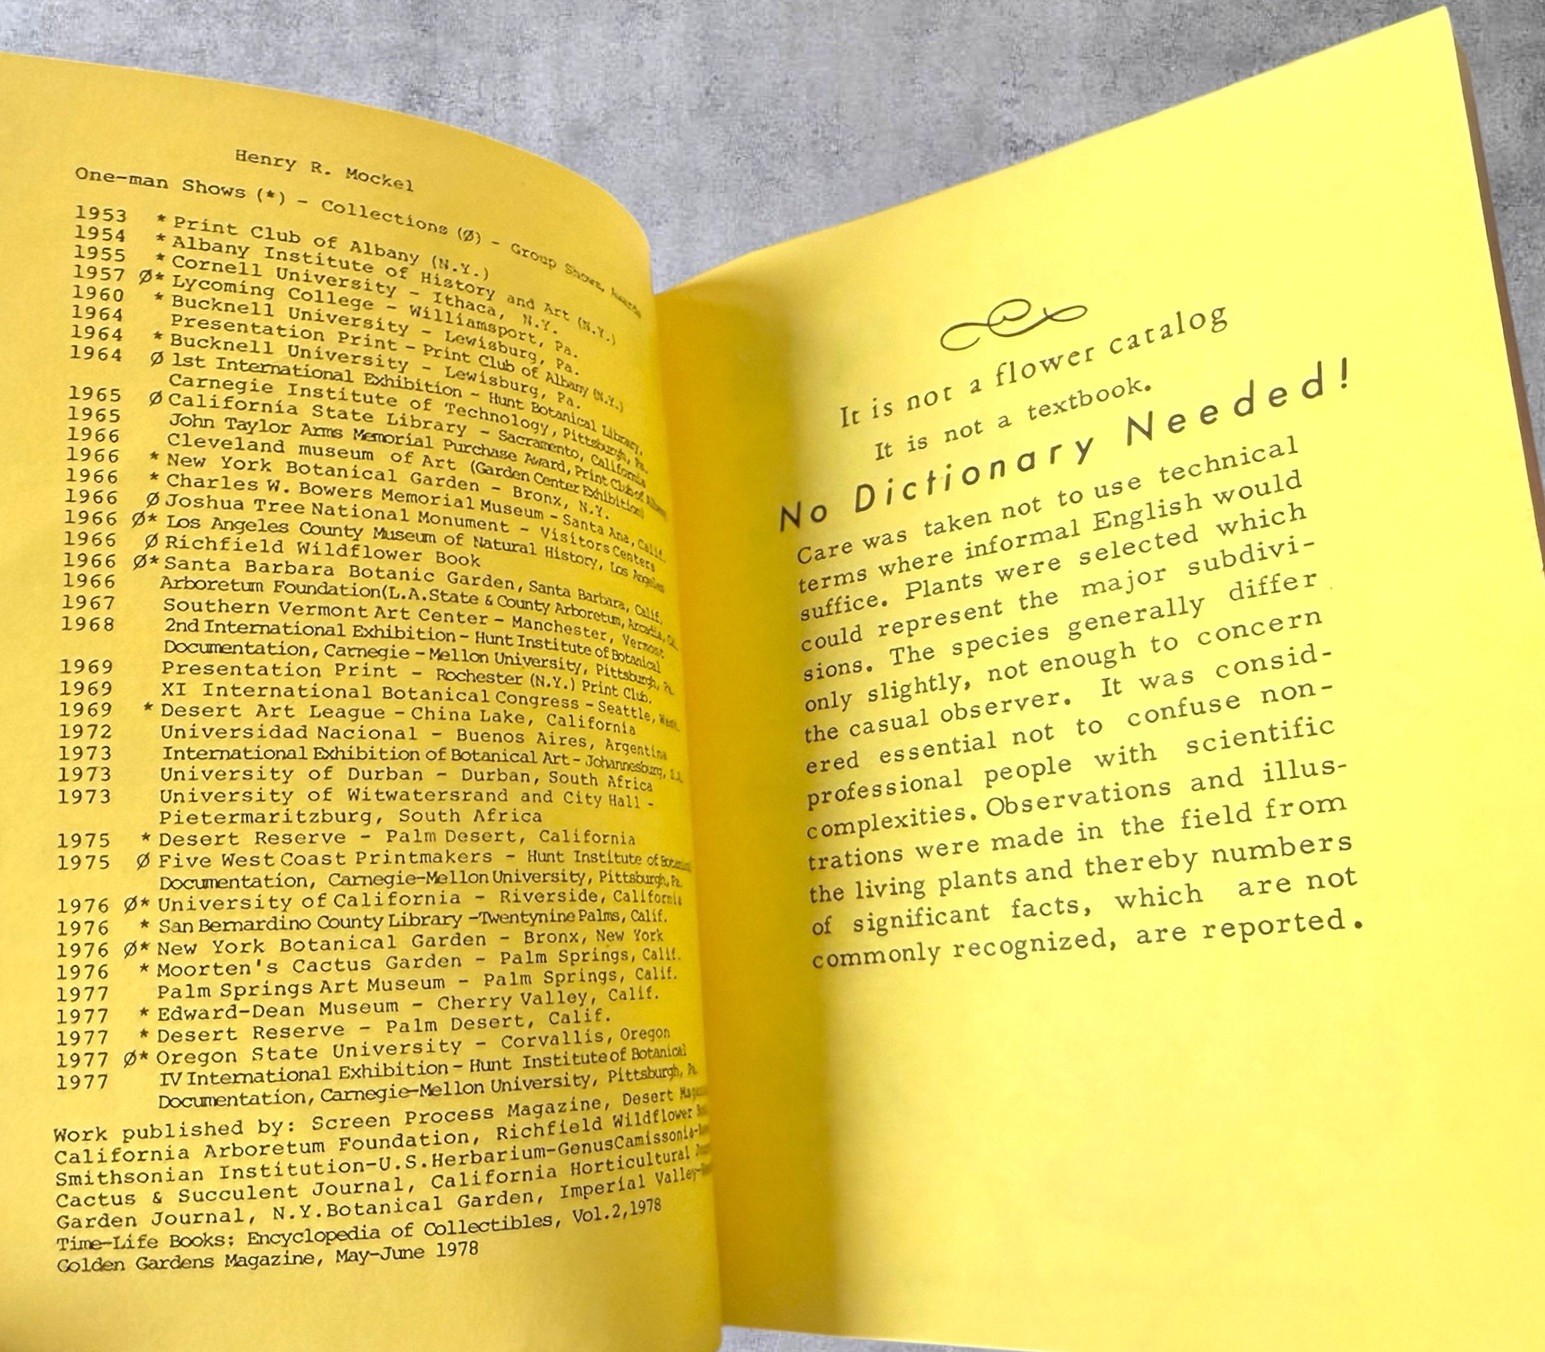 Henry R. Mockel
One-man Shows (*) - Collections (Ø) - Group Shows, Awards
1953 * Print Club of Albany (N.Y.)
1954 * Albany Institute of History and Art (N.Y.)
1955 * Cornell University - Ithaca, N.Y.
1957 Ø* Lycoming College - Williamsport, Pa.
1960 * Bucknell University - Lewisburg, Pa.
1964 Presentation Print - Print Club of Albany (N.Y.)
1964 * Bucknell University - Lewisburg, Pa.
1964 Ø 1st International Exhibition - Hunt Botanical Library,
Carnegie Institute of Technology, Pittsburgh, Pa.
1965 Ø California State Library - Sacramento, California
1965 John Taylor Arms Memorial Purchase Award, Print Club of Albany
1966 Cleveland museum of Art (Garden Center Exhibition)
1966 * New York Botanical Garden - Bronx, N.Y.
1966 * Charles W. Bowers Memorial Museum - Santa Ana, Calif.
1966 Ø Joshua Tree National Monument - Visitors Centers
1966 Ø* Los Angeles County Museum of Natural History, Los Angeles
1966 Ø Richfield Wildflower Book
1966 Ø* Santa Barbara Botanic Garden, Santa Barbara, Calif.
1966 Arboretum Foundation(L.A.State & County Arboretum, Arcadia, Ca.
1967 Southern Vermont Art Center - Manchester, Vermont
1968 2nd International Exhibition - Hunt Institute of Botanical
Documentation, Carnegie - Mellon University, Pittsburgh, Pa.
1969 Presentation Print - Rochester (N.Y.) Print Club.
1969 XI International Botanical Congress - Seattle, Wash.
1969 * Desert Art League - China Lake, California
1972 Universidad Nacional - Buenos Aires, Argentina
1973 International Exhibition of Botanical Art - Johannesburg, S.A.
1973 University of Durban - Durban, South Africa
1973 University of Witwatersrand and City Hall -
Pietermaritzburg, South Africa
1975 * Desert Reserve - Palm Desert, California
1975 Ø Five West Coast Printmakers - Hunt Institute of Botanical
Documentation, Carnegie-Mellon University, Pittsburgh, Pa.
1976 Ø* University of California - Riverside, California
1976 * San Bernardino County Library - Twentynine Palms, Calif.
1976 Ø* New York Botanical Garden - Bronx, New York
1976 * Moorten's Cactus Garden - Palm Springs, Calif.
1977 Palm Springs Art Museum - Palm Springs, Calif.
1977 * Edward-Dean Museum - Cherry Valley, Calif.
1977 * Desert Reserve - Palm Desert, Calif.
1977 Ø* Oregon State University - Corvallis, Oregon
1977 IV International Exhibition - Hunt Institute of Botanical
Documentation, Carnegie-Mellon University, Pittsburgh, Pa.
Work published by: Screen Process Magazine, Desert
California Arboretum Foundation, Richfield Wildflower
Smithsonian Institution-U.S.Herbarium-Genus Camissonia-
Cactus & Succulent Journal, California Horticultural
Garden Journal, N.Y.Botanical Garden, Imperial Valley-
Time-Life Books: Encyclopedia of Collectibles, Vol.2,1978
Golden Gardens Magazine, May-June 1978
It is not a flower catalog
It is not a textbook.
No Dictionary Needed!
Care was taken not to use technical
terms where informal English would
suffice. Plants were selected which
could represent the major subdivi-
sions. The species generally differ
only slightly, not enough to concern
the casual observer. It was consid-
ered essential not to confuse non-
professional people with scientific
complexities. Observations and illus-
trations were made in the field from
the living plants and thereby numbers
of significant facts, which are not
commonly recognized, are reported.